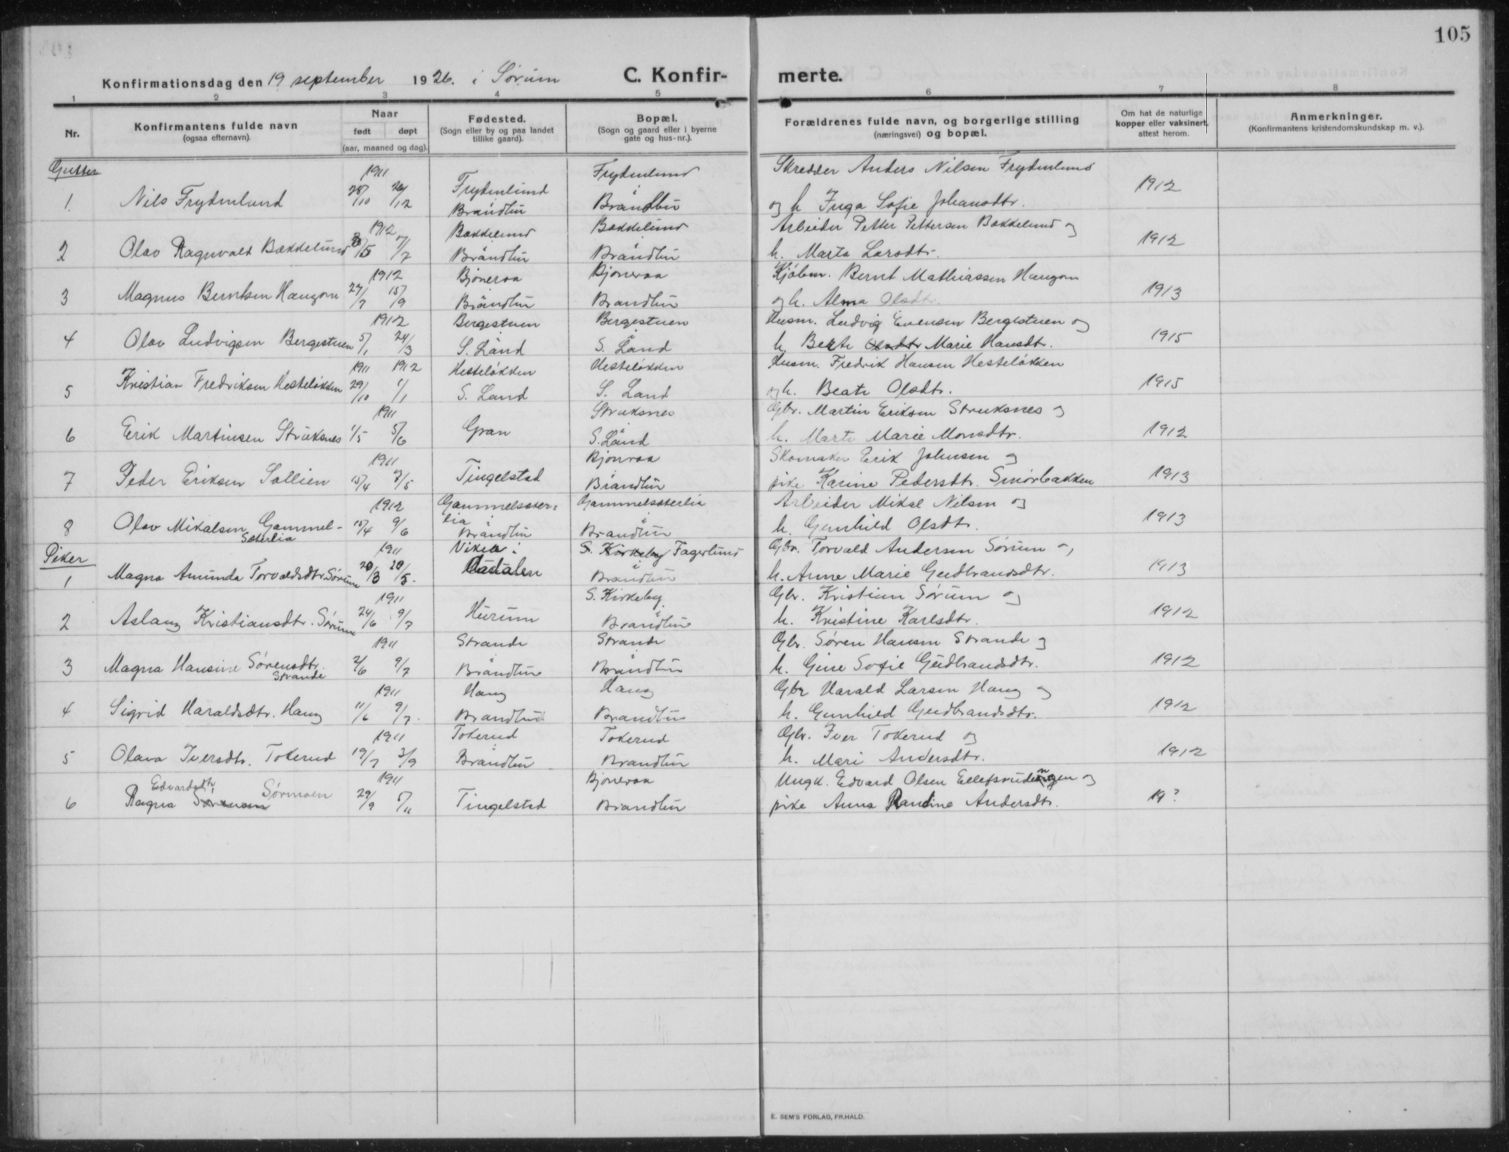 105
Konfirmationsdag den 19 september 1926. i Sørum C. Konfirmerte.
1 2 3 4 5 6 7 8
Nr.
Konfirmantens fulde navn
(ogsaa efternavn).
Naar
født døpt
(aar, maaned og dag).
Fødested.
(Sogn eller by og paa landet
tillike gaard).
Bopæl.
(Sogn og gaard eller i byerne
gate og hus-nr.).
Forældrenes fulde navn, og borgerlige stilling
(næringsvei) og bopæl.
Om hat de naturlige
kopper eller vaksinert,
attest herom.
Anmerkninger.
(Konfirmantens kristendomskundskap m. v.).
Gutter
1911 Frydenlund Skredder Anders Nilsen Frydenlund
1. Nils Frydenlund 28/10 26/12 Frydenlund Brandbu Brandbu og h. Inga Sofie Johansdtr. 1912
1912 Bakkelund Bakkelund Arbeider Petter Pettersen Bakkelund og
2 Olav Ragnvald Bakkelund /5 /7 Brandbu Brandbu h. Marta Larsdtr. 1912
1912 Bjoneroa Bjoneroa Kjøbm. Bernt Mathiassen Haugom
3 Magnus Berntsen Haugom 27/7 15/9 Brandbu Brandbu og h. Alma Olsdtr. 1913
1912 Bergestuen Bergestuen Husm. Ludvig Evensen Bergestuen og
4 Olav Ludvigsen Bergestuen 5/1 24/3 S. Land S. Land h. Beate Olsdtr Marie Hansdtr. 1915
1911 1912 Hesteløkken Hesteløkken Husm. Fredrik Hansen Hesteløkken
5 Kristian Fredriksen Hesteløkken 29/10 1/1 S. Land S. Land og h. Beate Olsdtr. 1915
1911 Struksnes Gbr. Martin Eriksen Struksnes og
6 Erik Martinsen Struksnes 1/5 5/6 Gran S. Land h. Marte Marie Monsdtr. 1912
1911 Bjoneroa Skomaker Erik Johnsen og
7 Peder Eriksen Sollien 15/4 7/5 Tingelstad Brandbu pike Karine Pedersdtr. Smörbakken 1913
1912 Gammelsæter- Gammelsæterlia Arbeider Mikal Nilsen og
8 Olav Mikalsen Gammel- 15/4 9/6 lia Brandbu Brandbu h. Gunhild Olsdtr. 1913
Sæterlia
Piker 1911 Vikea i S. Kirkeby Fagerlund Gbr. Torvald Andersen Sörum og
1 Magna Amunda Torvaldsdtr. Sörum 20/3 28/5. Aadalen Brandbu h. Anne Marie Gudbrandsdtr. 1913
1911 S. Kirkeby Gbr. Kristian Sörum og
2 Aslaug Kristiansdtr. Sörum 24/6 9/7 Hurum Brandbu h. Kristine Karlsdtr. 1912
1911 Strande Strande Gbr. Søren Hansen Strande og
3 Magna Hansine Sörensdtr. Strande 2/6 9/7 Brandbu Brandbu h. Gine Sofie Gudbrandsdtr. 1912
1911 Haug Haug Gbr Harald Larsen Haug og
4 Sigrid Haraldsdtr. Haug 11/6 9/7. Brandbu Brandbu h. Gunhild Gudbrandsdtr. 1912
1911 Tokerud Tokerud Gbr. Iver Tokerud og
5 Olava Iversdtr. Tokerud 19/7 3/9 Brandbu Brandbu h. Mari Andersdtr. 1912
Edvardsdtr. 1911 Bjoneroa Ungk. Edvard Olsen Ellefsrudengen og
6 Ragna Sörmoen 29/9 5/11 Tingelstad Brandbu pike Anna Randine Andersdtr. 19?
E. SEM'S FORLAG, FR.HALD.